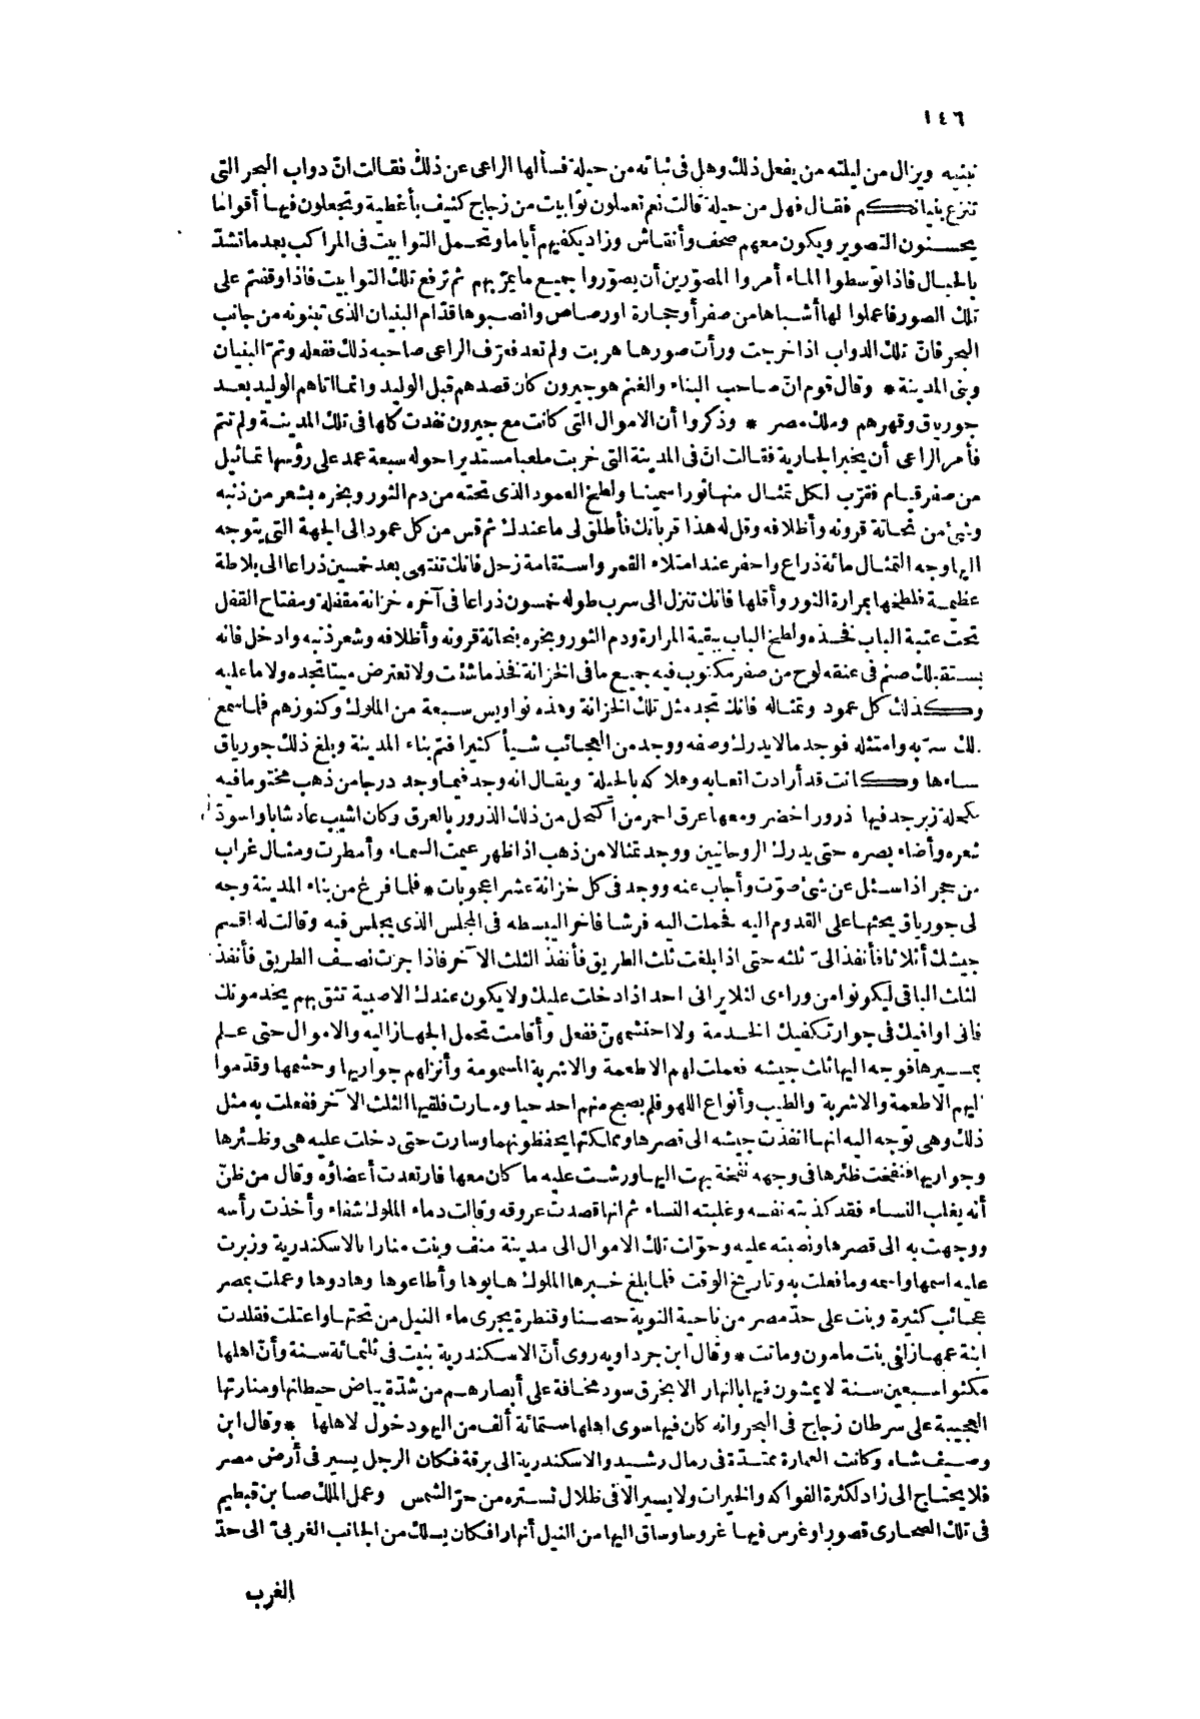 ١٤٦
تبنيه ويزال من ليلته من يفعل ذلك وهل فى ثباته من حيلة فسألها الراعى عن ذلك فقالت انّ دواب البحر التى
تنزع بنيانكم فقال فهل من حيلة قالت نعم تعملون توابيت من زجاج كثيف بأغطية وتجعلون فيها أقواما
يحسنون التصوير ويكون معهم صحف وأنقاش وزاد يكفيهم أياما وتحمل التوابيت فى المراكب بعد ما تشدّ
بالحبال فاذا توسطوا الماء أمروا المصوّرين أن يصوّروا جميع ما يمرّ بهم ثم ترفع تلك التوابيت فاذا وقفتم على
تلك الصور فاعملوا لها أشباها من صفر أو حجارة او رصاص وانصبوها قدّام البنيان الذى تبنونه من جانب
البحر فانّ تلك الدواب اذا خرجت ورأت صورها هربت ولم تعد فعرّف الراعى صاحبه ذلك ففعله وتمّ البنيان
وبنى المدينة * وقال قوم انّ صاحب البناء والغنم هو جيرون كان قصدهم قبل الوليد وانما اتاهم الوليد بعد
جورياق وقهرهم وملك مصر * وذكروا أن الاموال التى كانت مع جيرون نفدت كلها فى تلك المدينة ولم تتم
فأمر الراعى أن يخبر الجارية فقالت انّ فى المدينة التى خربت ملعبا مستديرا حوله سبعة عمد على رؤسها تماثيل
من صفر قيام فقرّب لكل تمثال منها ثورا سمينا ولطخ العمود الذى تحته من دم الثور وبخره بشعر من ذنبه
وشئ من نحاتة قرونه وأظلافه وقل له هذا قربانك فأطلق لى ما عندك ثم قس من كل عمود الى الجهة التى يتوجه
اليها وجه التمثال مائة ذراع واحفر عند امتلاء القمر واستقامة زحل فانك تنتهى بعد خمسين ذراعا الى بلاطة
عظيمة فلطخها بمرارة الثور وأقلها فانك تنزل الى سرب طوله خمسون ذراعا فى آخره خزانة مقفلة ومفتاح القفل
تحت عتبة الباب فخذه ولطخ الباب ببقية المرارة ودم الثور وبخره بنحاتة قرونه وأظلافه وشعر ذنبه وادخل فانه
يستقبلك صنم فى عنقه لوح من صفر مكتوب فيه جميع ما فى الخزانة فخذ ما شئت ولا تعترض ميتا تجده ولا ما عليه
وكذلك كل عمود وتمثاله فانك تجد مثل تلك الخزانة وهذه نواويس سبعة من الملوك وكنوزهم فلما سمع
لك سرّ به وامتثله فوجد ما لا يدرك وصفه ووجد من العجائب شيأ كثيرا فتم بناء المدينة وبلغ ذلك جورياق
ساءها وكانت قد أرادت اتعابه وهلاكه بالحيلة ويقال انه وجد فيما وجد درجا من ذهب مختوما فيه
مكحلة زبرجد فيها ذرور اخضر ومعها عرق احمر من اكتحل من ذلك الذرور بالعرق وكان اشيب عاد شابا واسودّ
شعره وأضاء بصره حتى يدرك الروحانيين ووجد تمثالا من ذهب اذا ظهر غيمت السماء وأمطرت ومثال غراب
من حجر اذا سئل عن شئ صوّت وأجاب عنه ووجد فى كل خزانة عشر اعجوبات * فلما فرغ من بناء المدينة وجه
لى جورياق يحثها على القدوم اليه فحملت اليه فرشا فاخرا ليبسطه فى المجلس الذى يجلس فيه وقالت له اقسم
جيشك أثلاثا فأنفذ الىّ ثلثه حتى اذا بلغت ثلث الطريق فأنفذ الثلث الآخر فاذا جزت نصف الطريق فأنفذ
لثلث الباقى ليكونوا من وراءى لئلا يرانى احد اذا دخلت عليك ولا يكون عندك الا صبية تثق بهم يخدمونك
فانى اوافيك فى جوار تكفيك الخدمة ولا احتشمهنّ ففعل وأقامت تحمل الجهاز اليه والاموال حتى علم
بمسيرها فوجه اليها ثلث جيشه فعملت لهم الاطعمة والاشربة المسمومة وأنزلهم جواريها وحشمها وقدّموا
ليهم الاطعمة والاشربة والطيب وأنواع اللهو فلم يصبح منهم احد حيا وسارت فلقيها الثلث الآخر ففعلت به مثل
ذلك وهى توجه اليه انها انفذت جيشه الى قصرها ومملكتها يحفظونهما وسارت حتى دخلت عليه هى وظئرها
وجواريها فنفخت ظئرها فى وجهه نفخة بهت اليها ورشت عليه ما كان معها فارتعدت أعضاؤه وقال من ظنّ
أنه يغلب النساء فقد كذبته نفسه وغلبته النساء ثم انها فصدت عروقه وقالت دماء الملوك شفاء وأخذت رأسه
ووجهت به الى قصرها ونصبته عليه وحوّلت تلك الاموال الى مدينة منف وبنت منارا بالاسكندرية وزبرت
عليه اسمها واسمه وما فعلت به وتاريخ الوقت فلما بلغ خبرها الملوك هابوها وأطاعوها وهادوها وعملت بمصر
عجائب كثيرة وبنت على حدّ مصر من ناحية النوبة حصنا وقنطرة يجرى ماء النيل من تحتها واعتلت فقلدت
ابنة عمها زلفى بنت مامون وماتت * وقال ابن خرداويه روى أنّ الاسكندرية بنيت فى ثلثمائة سنة وأنّ اهلها
مكثوا سبعين سنة لا يمشون فيها بالنهار الا بخرق سود مخافة على أبصارهم من شدّة بياض حيطانها ومنارتها
العجيبة على سرطان زجاج فى البحر وانه كان فيها سوى اهلها ستمائة ألف من اليهود خول لاهلها * وقال ابن
وصيف شاه وكانت العمارة ممتدّة فى رمال رشيد والاسكندرية الى برقة فكان الرجل يسير فى أرض مصر
فلا يحتاج الى زاد لكثرة الفواكه والخيرات ولا يسير الا فى ظلال تستره من حرّ الشمس وعمل الملك صا بن قبطيم
فى تلك الصحارى قصورا وغرس فيها غروسا وساق اليها من النيل أنهارا فكان يسلك من الجانب الغربىّ الى حدّ
الغرب